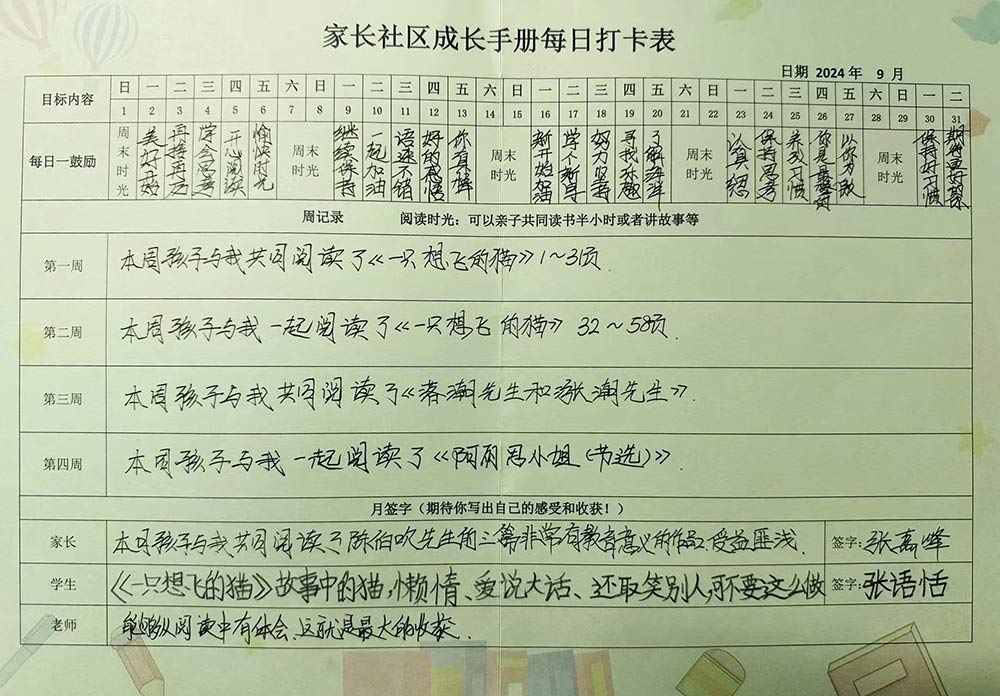 家长社区成长手册每日打卡表
日期 2024年 9 月
目标内容 日 一 二 三 四 五 六 日 一 二 三 四 五 六 日 一 二 三 四 五 六 日 一 二 三 四 五 六 日 一 二
1 2 3 4 5 6 7 8 9 10 11 12 13 14 15 16 17 18 19 20 21 22 23 24 25 26 27 28 29 30 31
每日一鼓励 周末时光 美好开始 再接再厉 学会思考 开心阅读 愉快时光 周末时光 继续保持 一起加油 语速不错 好的感悟 你有多棒 周末时光 新开始加油 努力坚持 寻找乐趣 周末时光 认真 保持思考 养成习惯 你是最棒 以你为傲 周末时光 保持好习惯
周记录 阅读时光：可以亲子共同读书半小时或者讲故事等
第一周 本周孩子与我共同阅读了《一只想飞的猫》1~3页.
第二周 本周孩子与我一起阅读了《一只想飞的猫》32~58页.
第三周 本周孩子与我共同阅读了《落潮先生和涨潮先生》.
第四周 本周孩子与我一起阅读了《阿丽思小姐(节选)》.
月签字（期待你写出自己的感受和收获！）
家长 本月孩子与我共同阅读了陈伯吹先生的三篇非常有教育意义的作品.受益匪浅. 签字：张嘉峰
学生 《一只想飞的猫》故事中的猫,懒惰、爱说大话、还取笑别人,可不要这么做 签字：张语恬
老师 能够从阅读中有体会、这就是最大的收获.